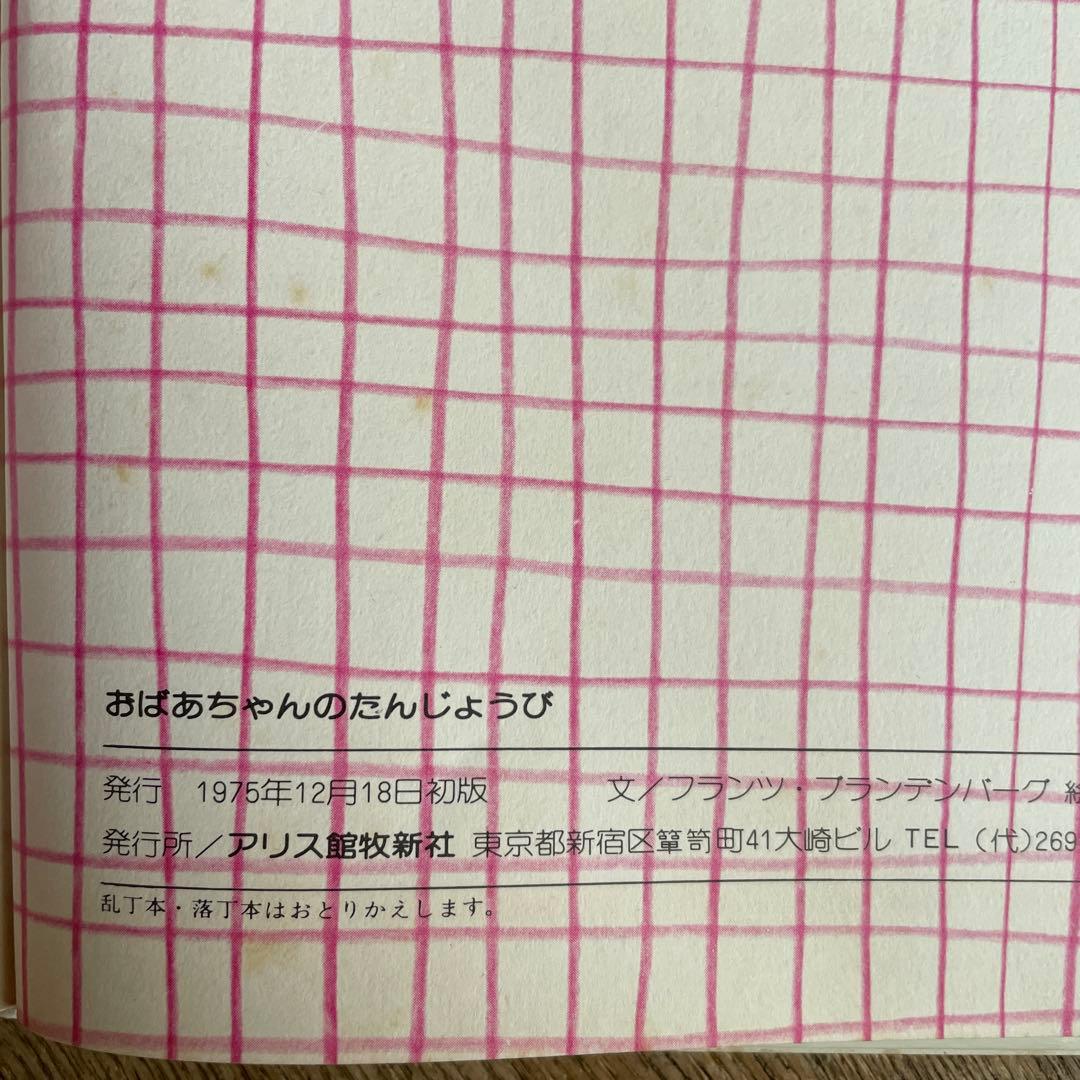 おばあちゃんのたんじょうび
発行 1975年12月18日初版 文／フランツ・ブランデンバーグ 絵
発行所／アリス館牧新社 東京都新宿区簞笥町41大崎ビル TEL (代)269
乱丁本・落丁本はおとりかえします。